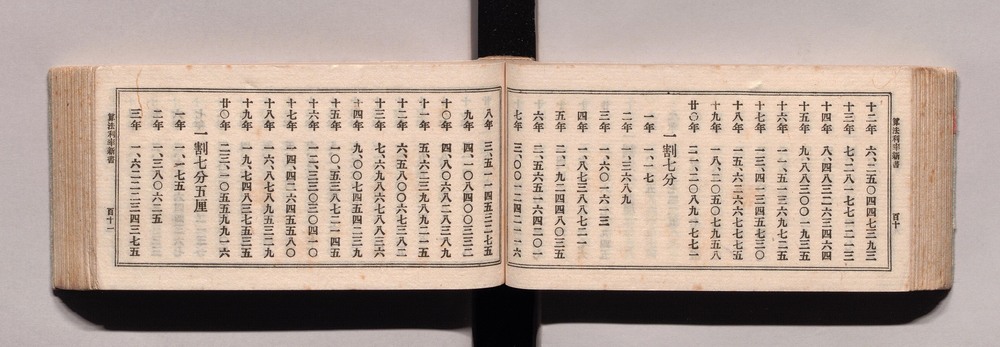 算法利率新書
百十
十二年 六、二五〇四四七三九三
十三年 七、二八一七七一二一三
十四年 八、四八三二六三四六四
十五年 九、八八三〇〇一九三五
十六年 一一、五一三六九七二五
十七年 一三、四一三四五七三〇
十八年 一五、六二六六七七七五
十九年 一八、二〇五〇七九五八
廿〇年 二一、二〇八九一七七一
一割七分
一年 一、一七
二年 一、三六八九
三年 一、六〇一六一三
四年 一、八七三八八七二一
五年 二、一九二四四八〇三五
六年 二、五六五一六四二〇一
七年 三、〇〇一二四二一一六
八年 三、五一一四五三二七五
九年 四、一〇八四〇〇三三二
十〇年 四、八〇六八二八三八九
十一年 五、六二三九八九二一五
十二年 六、五八〇〇六七三八二
十三年 七、六九八六七八八三六
十四年 九、〇〇七四五四二三九
十五年 一〇、五三八七二一四五
十六年 一二、三三〇三〇四一〇
十七年 一四、四二六四五五八〇
十八年 一六、八七八九五三二八
十九年 一九、七四八三七五三五
廿〇年 二三、一〇五五九九一六
一割七分五厘
一年 一、一七五
二年 一、三八〇六二五
三年 一、六二二二三四三七五
算法利率新書
百十一